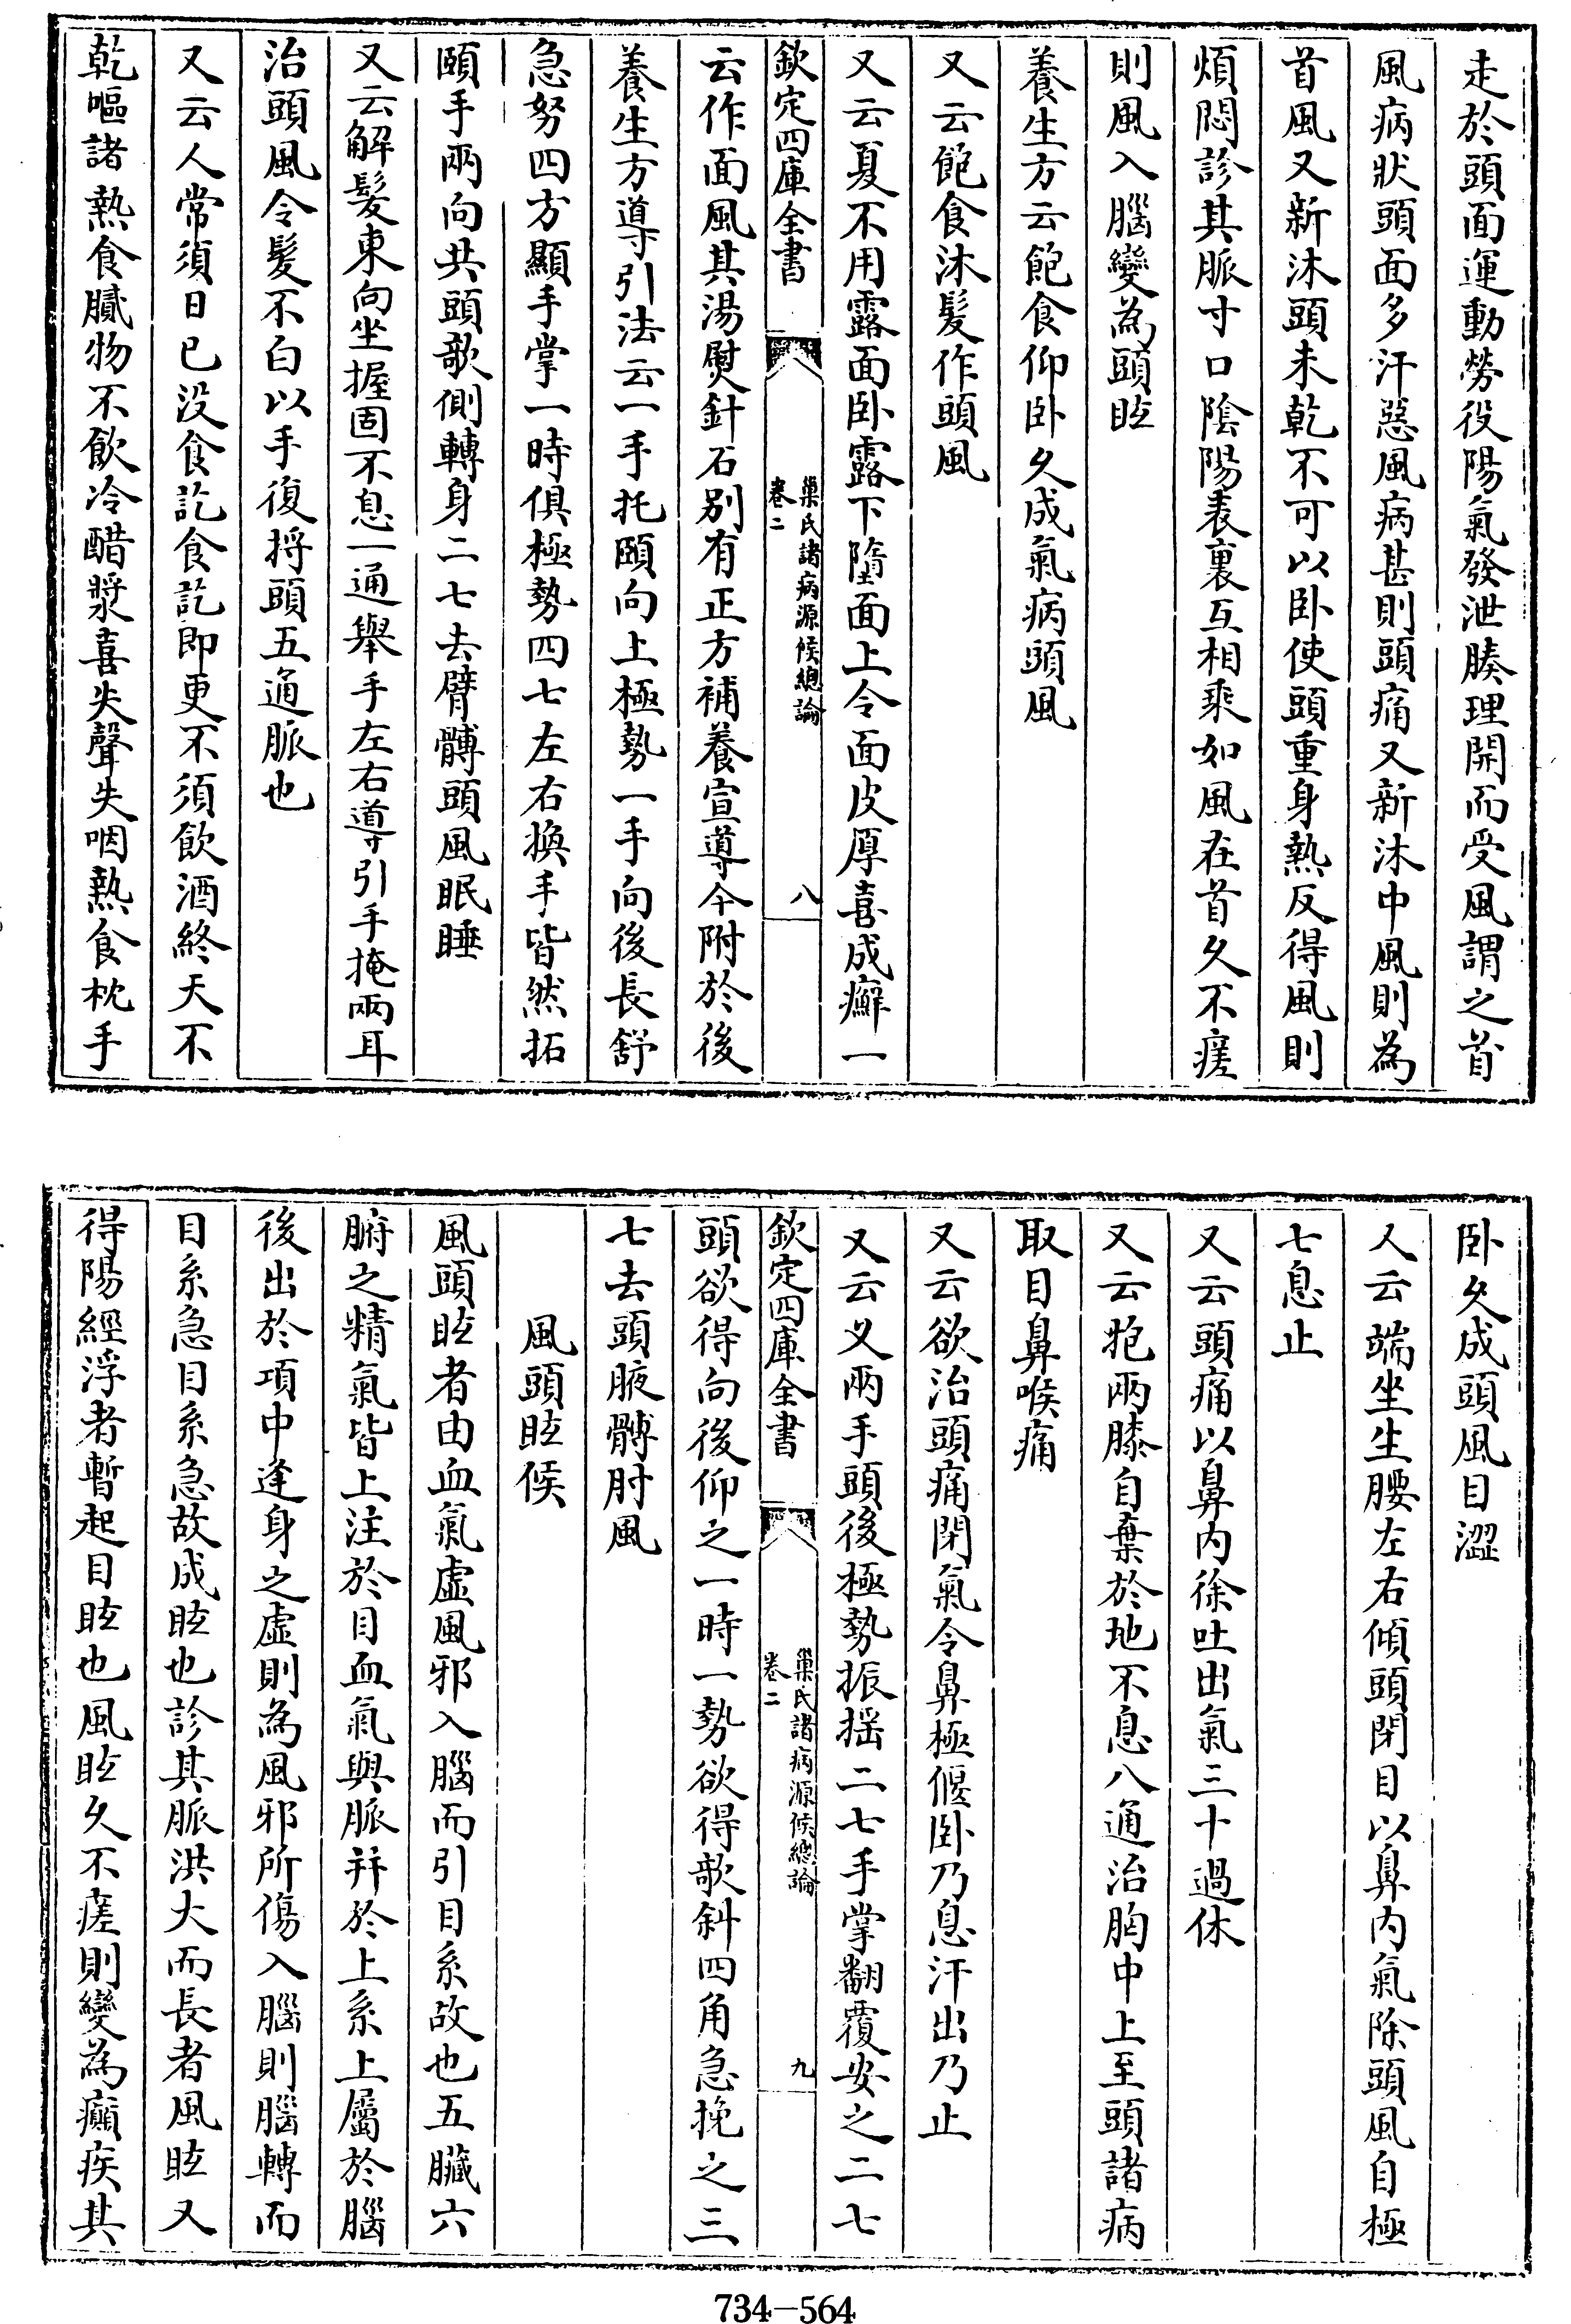 走於頭面運動勞役陽氣發泄腠理開而受風謂之首
風病狀頭面多汗惡風病甚則頭痛又新沐中風則為
首風又新沐頭未乾不可以卧使頭重身熱反得風則
煩悶診其脈寸口陰陽表裏互相乘如風在首久不瘥
則風入腦變為頭眩
養生方云飽食仰卧久成氣病頭風
又云飽食沐髮作頭風
又云夏不用露面卧露下墮面上令面皮厚喜成癬一
欽定四庫全書
巢氏諸病源候總論
卷二
八
云作面風其湯熨針石别有正方補養宣導今附於後
養生方導引法云一手托頤向上極勢一手向後長舒
急努四方顯手掌一時俱極勢四七左右換手皆然拓
頤手兩向共頭欹側轉身二七去臂髆頭風眠睡
又云解髮東向坐握固不息一通舉手左右導引手掩兩耳
治頭風令髮不白以手復捋頭五通脈也
又云人常須日已没食訖食訖即更不須飲酒終天不
乾嘔諸熱食膩物不飲冷醋漿喜失聲失咽熱食枕手
卧久成頭風目澀
人云端坐生腰左右傾頭閉目以鼻内氣除頭風自極
七息止
又云頭痛以鼻内徐吐出氣三十過休
又云抱兩膝自棄於地不息八通治胸中上至頭諸病
取目鼻喉痛
又云欲治頭痛閉氣令鼻極偃卧乃息汗出乃止
又云乂兩手頭後極勢振揺二七手掌翻覆安之二七
欽定四庫全書
巢氏諸病源候總論
卷二
九
頭欲得向後仰之一時一勢欲得欹斜四角急挽之三
七去頭腋髆肘風
風頭眩候
風頭眩者由血氣虛風邪入腦而引目系故也五臟六
腑之精氣皆上注於目血氣與脈并於上系上屬於腦
後出於項中逢身之虛則為風邪所傷入腦則腦轉而
目系急目系急故成眩也診其脈洪大而長者風眩又
得陽經浮者暫起目眩也風眩久不瘥則變為癲疾其
734-564